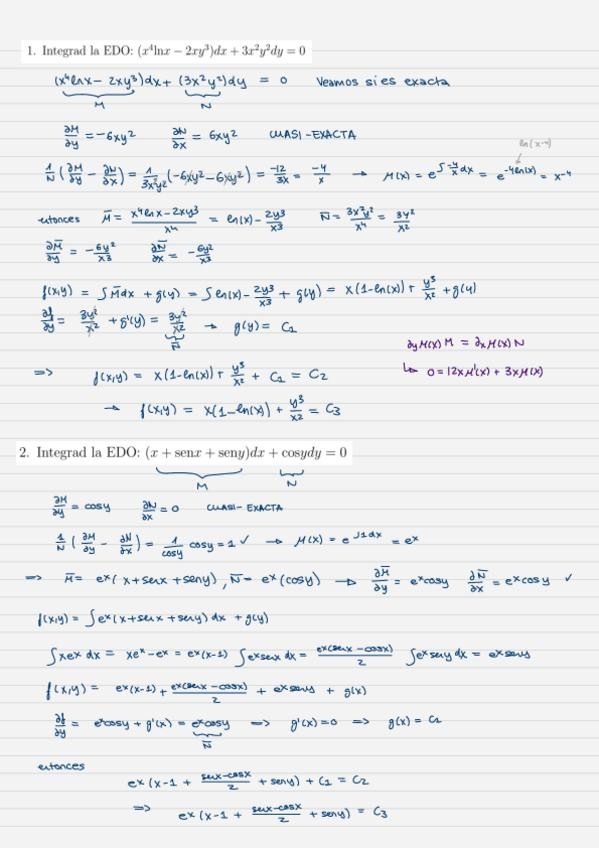 1. Integrad la EDO: (x⁴lnx − 2xy³)dx + 3x²y²dy = 0
(x⁴lnx − 2xy³)dx + (3x²y²)dy = 0 Veamos si es exacta
M N
∂M/∂y = −6xy² ∂N/∂x = 6xy² CUASI-EXACTA
ln(x⁻⁴)
1/N (∂M/∂y − ∂N/∂x) = 1/3x²y² (−6xy² − 6xy²) = −12/3x = −4/x → μ(x) = e^∫−4/x dx = e^−4ln(x) = x⁻⁴
entonces M̄ = x⁴lnx − 2xy³/x⁴ = ln(x) − 2y³/x³ N̄ = 3x²y²/x⁴ = 3y²/x²
∂M̄/∂y = −6y²/x³ ∂N̄/∂x = −6y²/x³
f(x,y) = ∫M̄dx + g(y) = ∫ln(x) − 2y³/x³ + g(y) = x(1−ln(x)) + y³/x² + g(y)
∂f/∂y = 3y²/x² + g'(y) = 3y²/x² → g(y) = C₁
N̄
∂yμ(x)M = ∂xμ(x)N
⇒ f(x,y) = x(1−ln(x)) + y³/x² + C₁ = C₂
↳ 0 = 12xμ'(x) + 3xμ(x)
→ f(x,y) = x(1−ln(x)) + y³/x² = C₃
2. Integrad la EDO: (x + senx + seny)dx + cosydy = 0
M N
∂M/∂y = cosy ∂N/∂x = 0 CUASI-EXACTA
1/N (∂M/∂y − ∂N/∂x) = 1/cosy cosy = 1 ✓ → μ(x) = e^∫1dx = eˣ
⇒ M̄ = eˣ(x + senx + seny), N̄ = eˣ(cosy) → ∂M̄/∂y = eˣcosy ∂N̄/∂x = eˣcosy ✓
f(x,y) = ∫eˣ(x + senx + seny)dx + g(y)
∫xeˣ dx = xeˣ − eˣ = eˣ(x−1) ∫eˣsenx dx = eˣ(senx − cosx)/2 ∫eˣseny dx = eˣseny
f(x,y) = eˣ(x−1) + eˣ(senx − cosx)/2 + eˣseny + g(x)
∂f/∂y = eˣcosy + g'(x) = eˣcosy ⇒ g'(x) = 0 ⇒ g(x) = C₁
N̄
entonces
eˣ(x−1 + senx−cosx/2 + seny) + C₁ = C₂
⇒ eˣ(x−1 + senx−cosx/2 + seny) = C₃